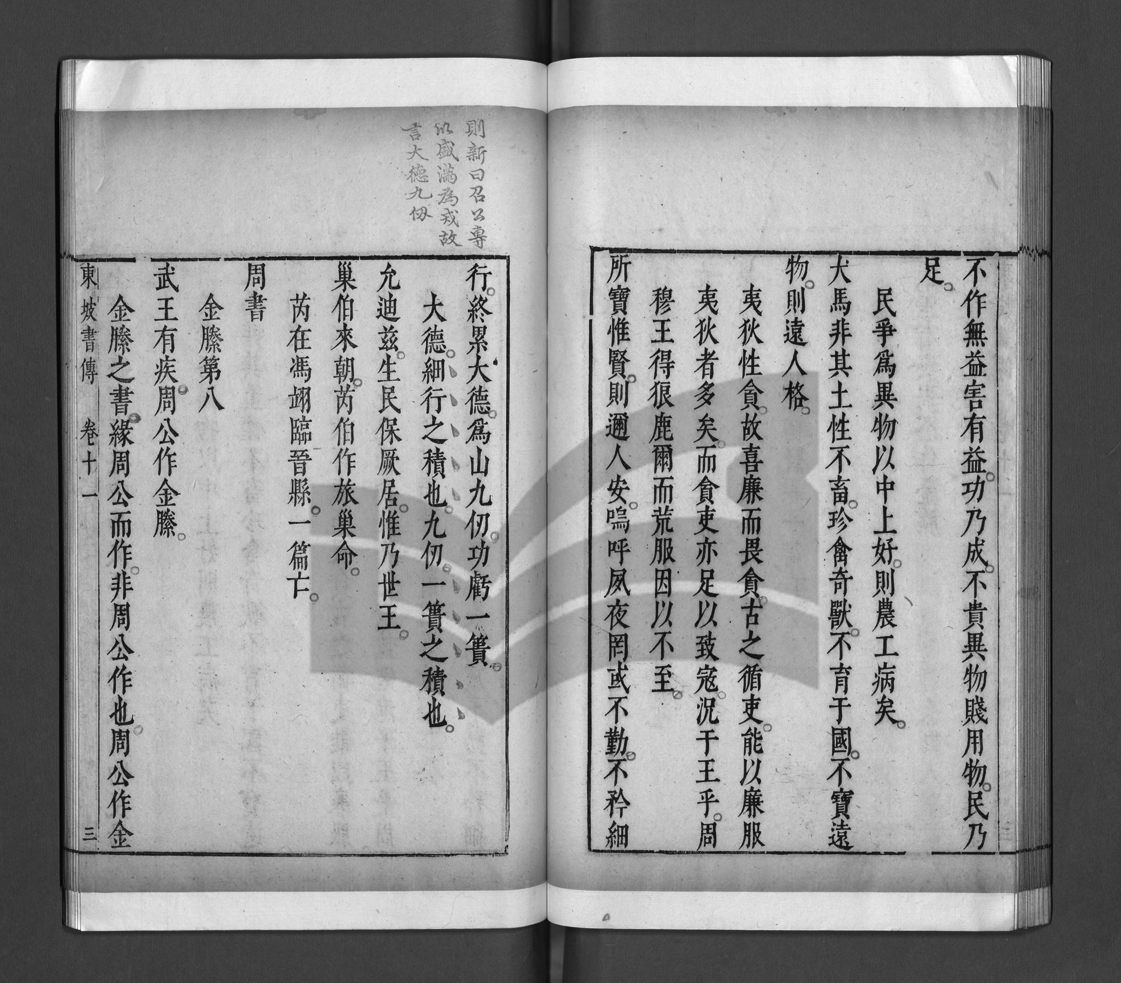 不作無益害有益。功乃成。不貴異物賤用物。民乃
足。
民爭爲異物以中上好。則農工病矣。
犬馬非其土性不畜。珍禽奇獸。不育于國。不寶遠
物。則遠人格。
夷狄性貪。故喜廉而畏貪。古之循吏。能以廉服
夷狄者多矣。而貪吏亦足以致寇。況于王乎。周
穆王得狼鹿爾而荒服因以不至。
所寶惟賢。則邇人安。嗚呼夙夜罔或不勤。不矜細
則新曰召公專
以盛滿為戒故
言大德九仞
行。終累大德。爲山九仞。功虧一簣。
大德。細行之積也。九仞。一簣之積也。
允迪茲。生民保厥居。惟乃世王。
巢伯來朝。芮伯作旅巢命。
芮在馮翊臨晉縣。一篇亡。
周書
金縢第八
武王有疾。周公作金縢。
金縢之書。緣周公而作。非周公作也。周公作金
東坡書傳 卷十一 三